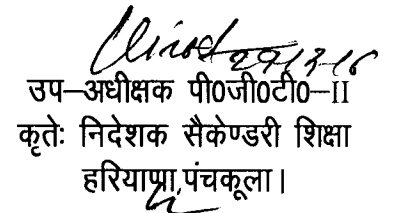 29/3/16
उप–अधीक्षक पी0जी0टी0–II
कृतेः निदेशक सैकेण्डरी शिक्षा
हरियाणा,पंचकूला।